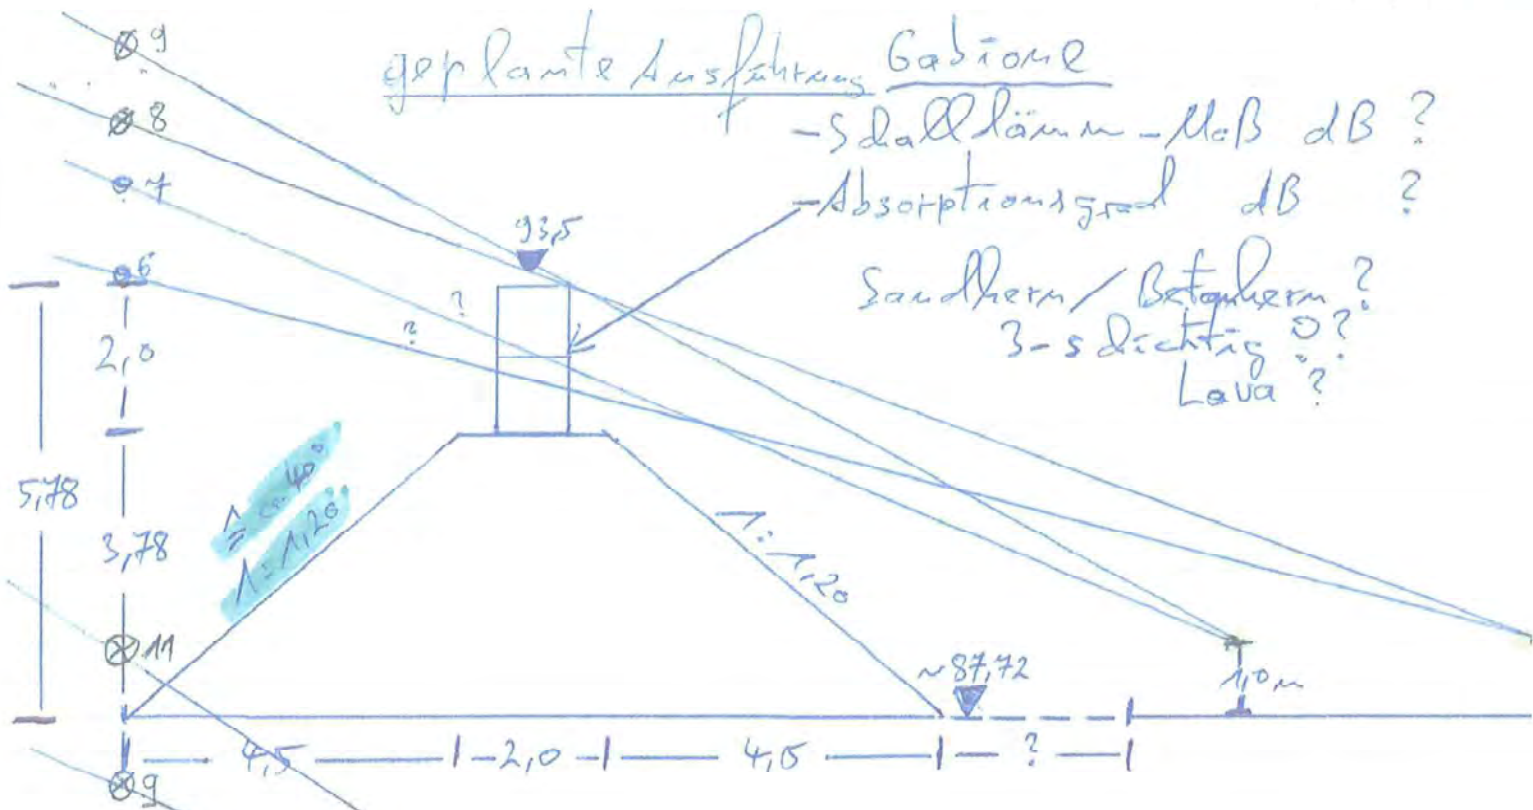 geplante Ausführung Gabione
- Schalldämm-Maß dB ?
- Absorptionsgrad dB ?
Sandkern / Betonkern ?
3-schichtig ?
Lava ?
9
8
7
6
93,5
?
?
2,0
5,78
3,78
≙ ca 40°
1:1,20
1:1,20
11
~87,72
1,0 m
4,5
2,0
4,5
?
9